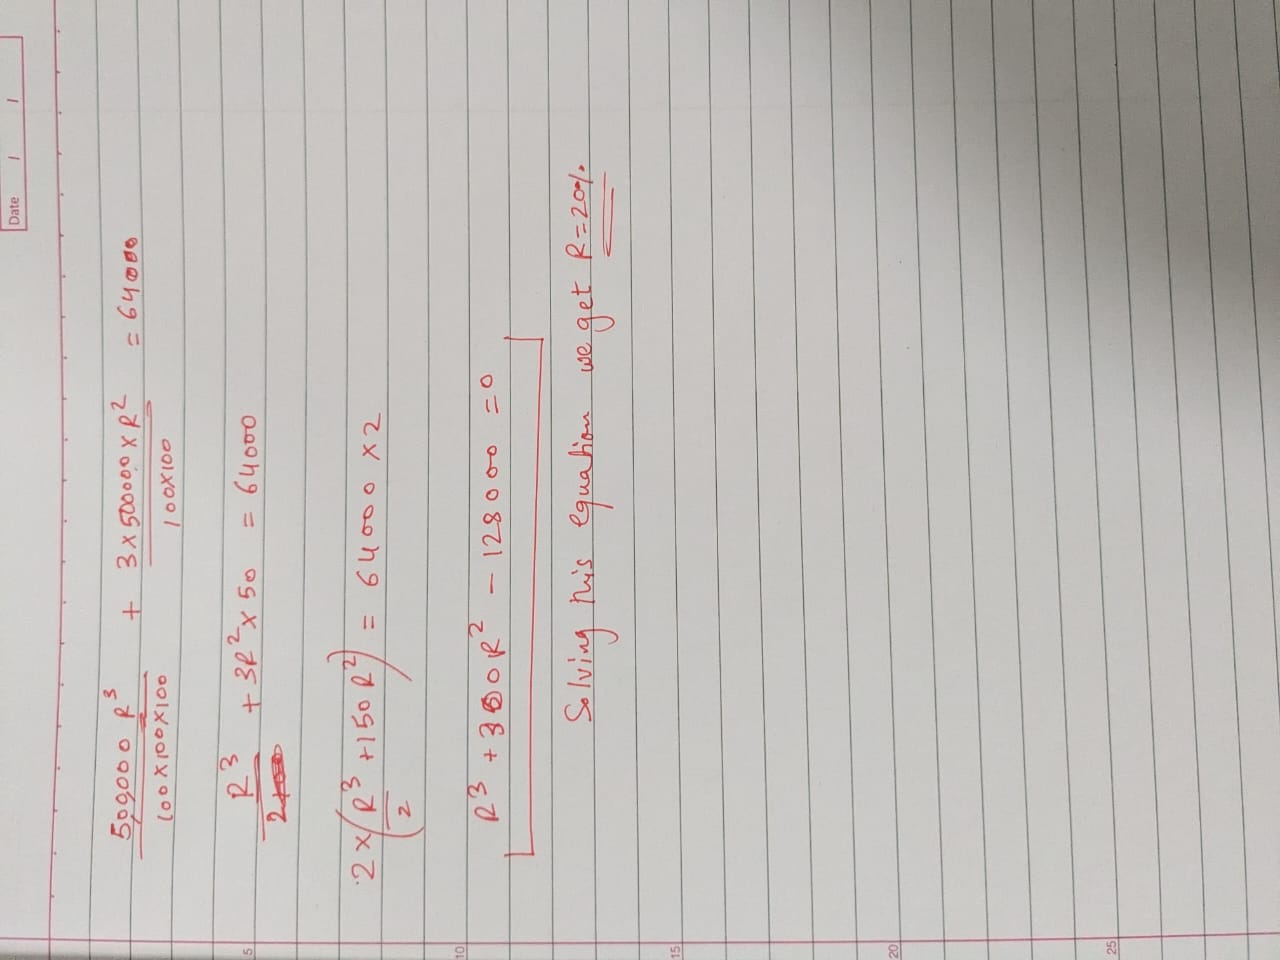 Date / /
500000 R³ / 100x100x100 + 3x500000xR² / 100x100 = 64000
R³ / 2 + 3R²x50 = 64000
2x(R³/2 + 150R²) = 64000x2
R³ + 300R² - 128000 = 0
Solving this equation we get R=20%
5
10
15
20
25